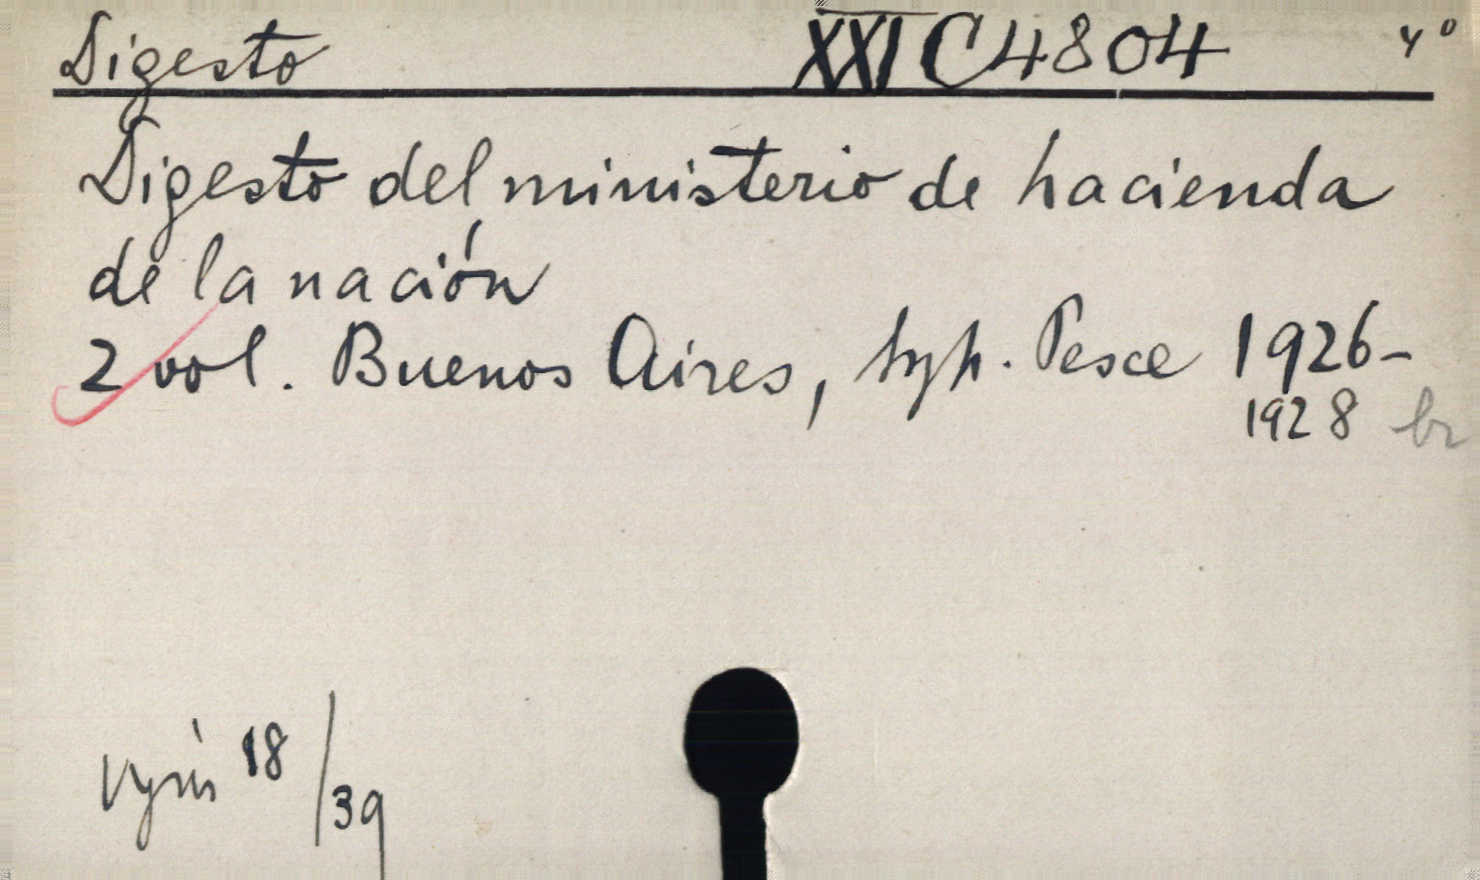 Digesto XXI C 4804 4°
Digesto del ministerio de hacienda
de la nación
2 vol. Buenos Aires, typ. Pesce 1926-
1928 br
18/39